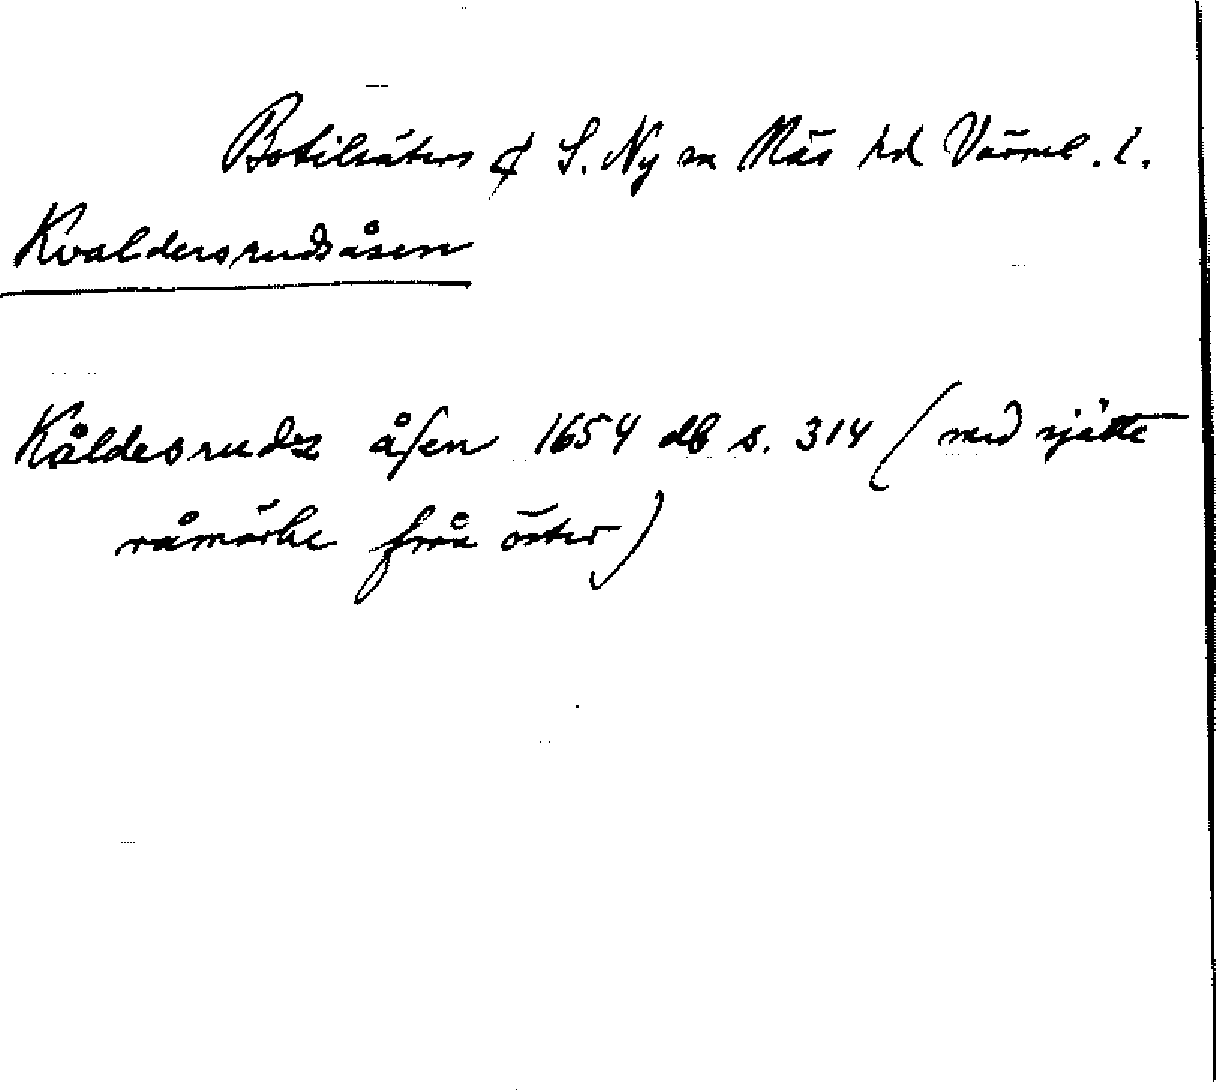 Botilsäters ₵ S. Ny sn Näs hd Värml. l.
Kvaldersrudsåsen
Kåldesrudz åſen 1654 db s. 314 (med sjätte
råmärke från öster)